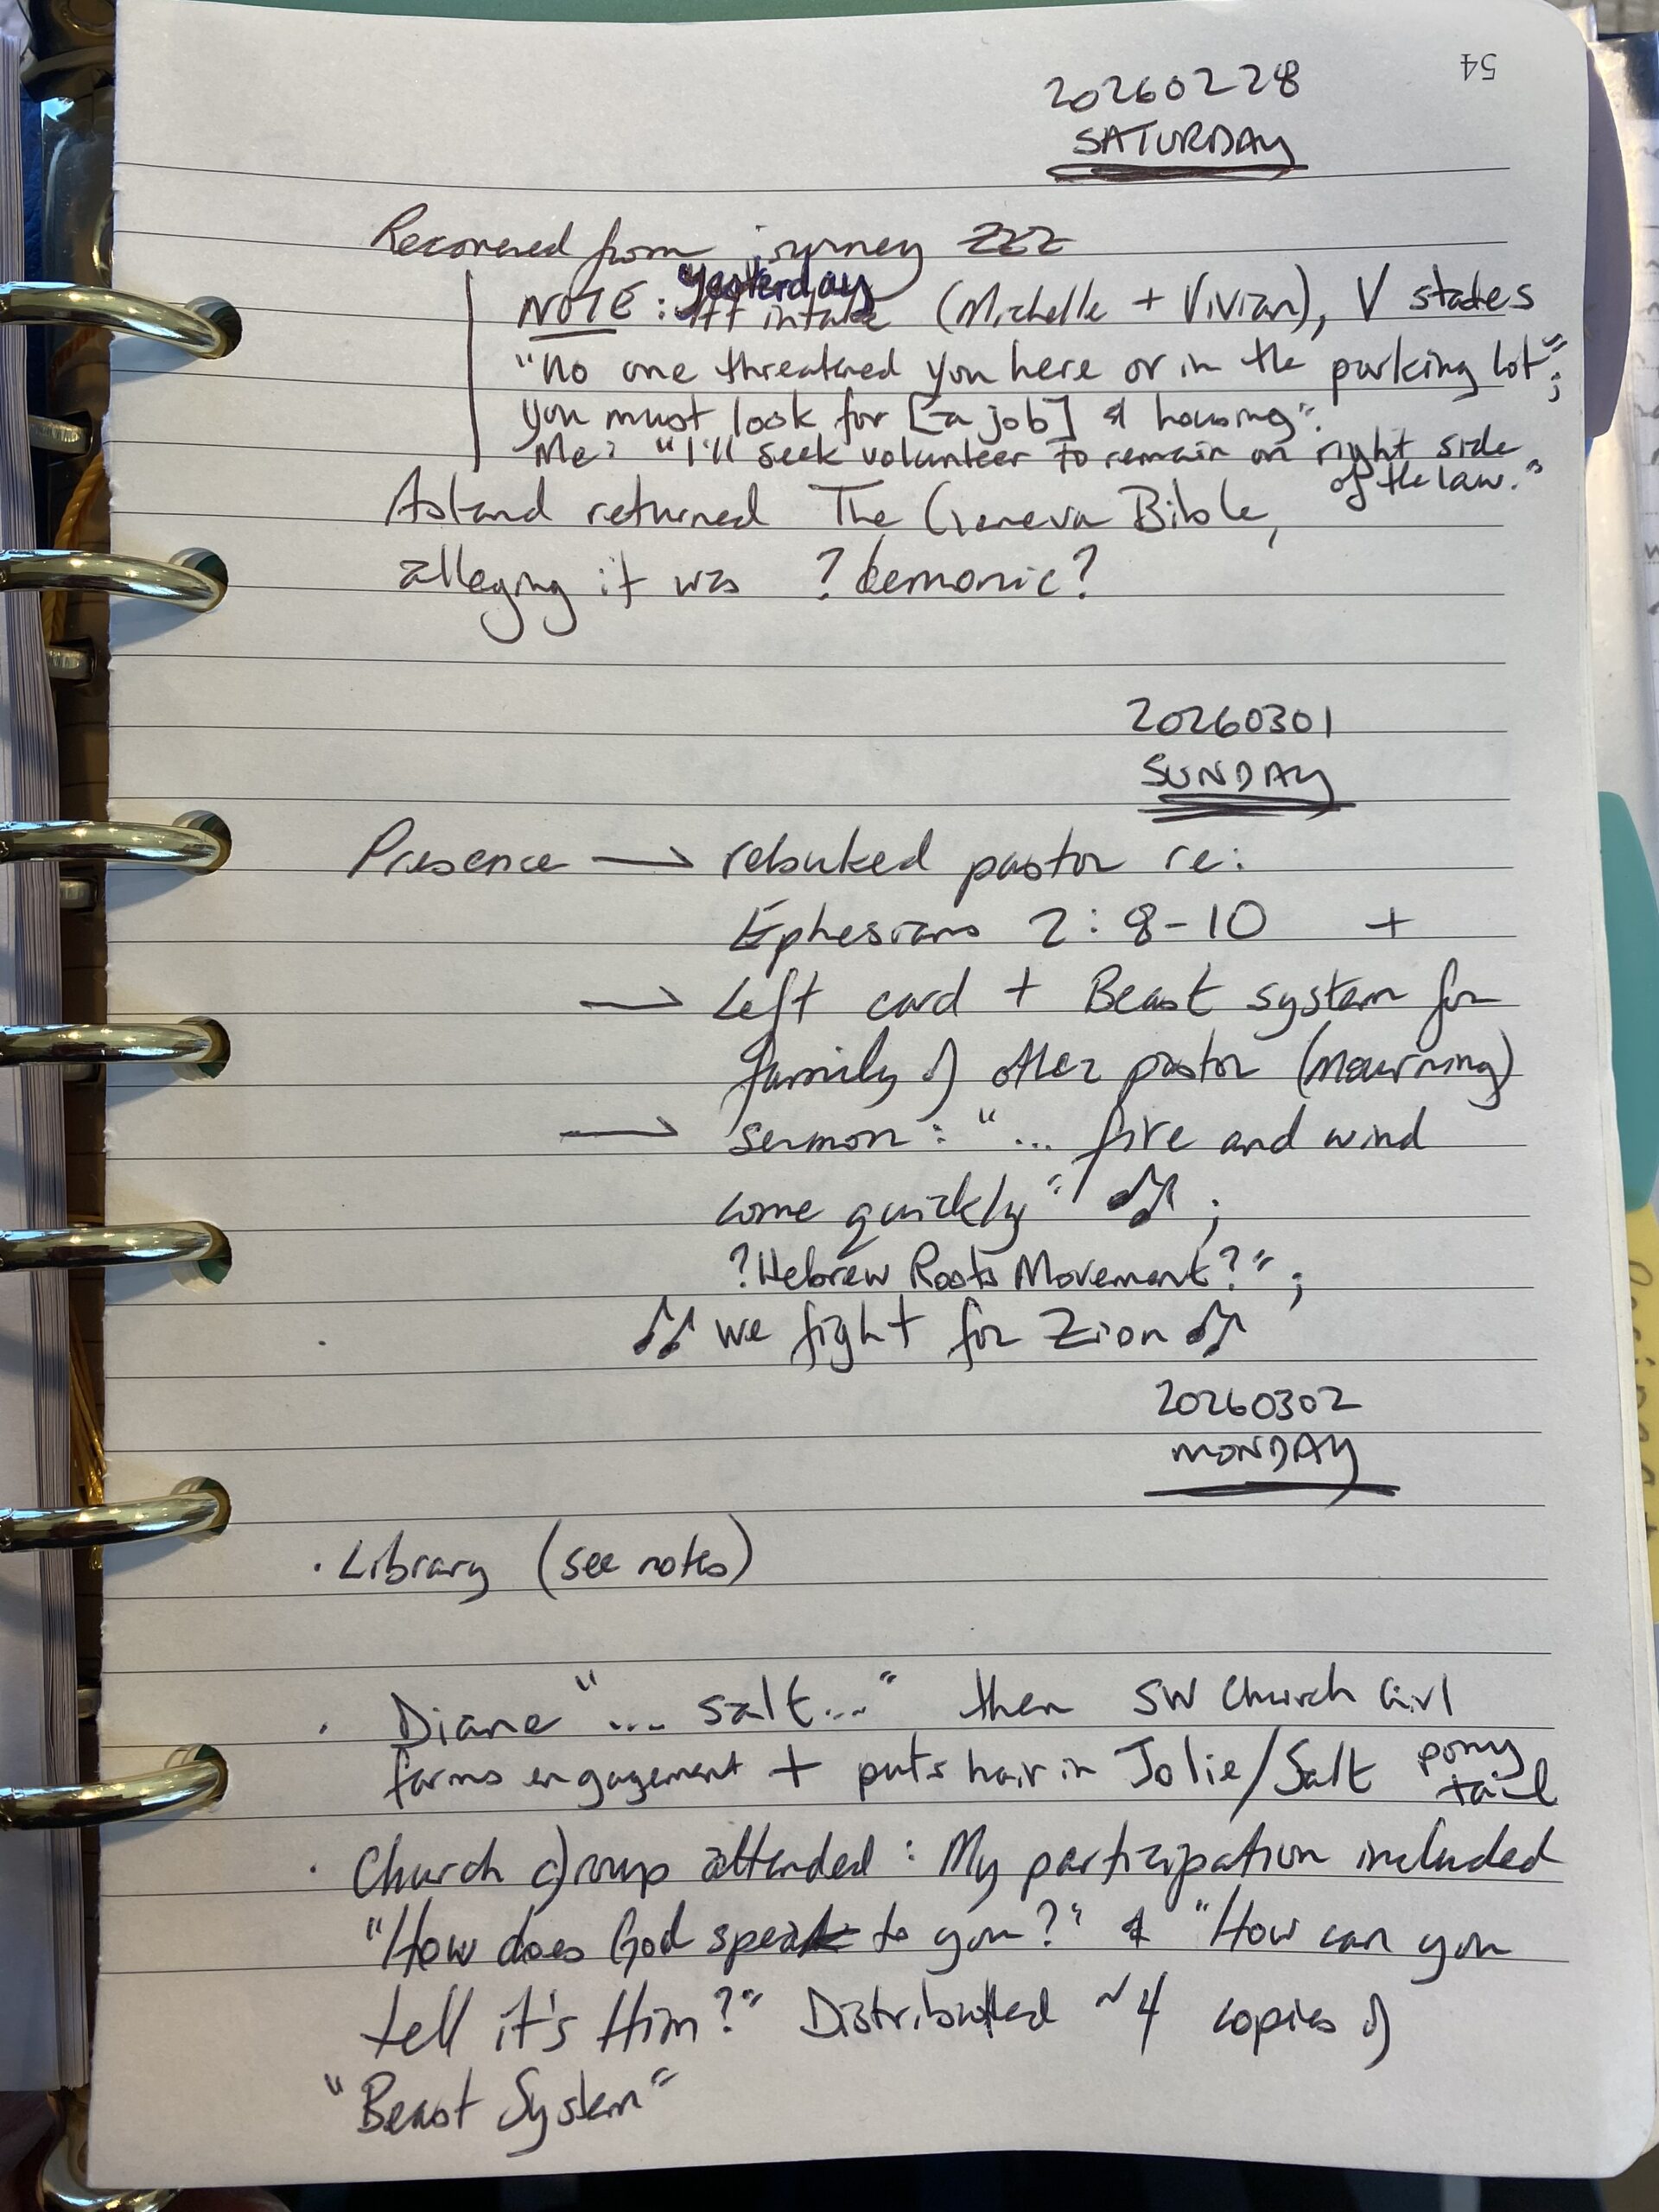 54
20260228
SATURDAY
Recovered from journey ZZZ
"Yesterday"
NOTE: intake (Michelle + Vivian), V states
"No one threatened you here or in the parking lot";
you must look for [a job] & housing".
Me: "I'll seek volunteer to remain on right side
of the law."
returned The Geneva Bible,
alleging it was ?demonic?
20260301
SUNDAY
Presence → rebuked pastor re:
Ephesians 2:8-10 +
→ Left card + Beast system for
family of other pastor (mourning)
→ sermon: "... fire and wind
come quickly" ♫ ;
?Hebrew Roots Movement?";
♫ we fight for Zion ♫
20260302
MONDAY
· Library (see notes)
· Diane "... salt..." then SW Church Girl
forms engagement + puts hair in Jolie/Salt pony
tail
· Church group attended: My participation included
"How does God speak to you?" & "How can you
tell it's Him?" Distributed ~4 copies of
"Beast System"